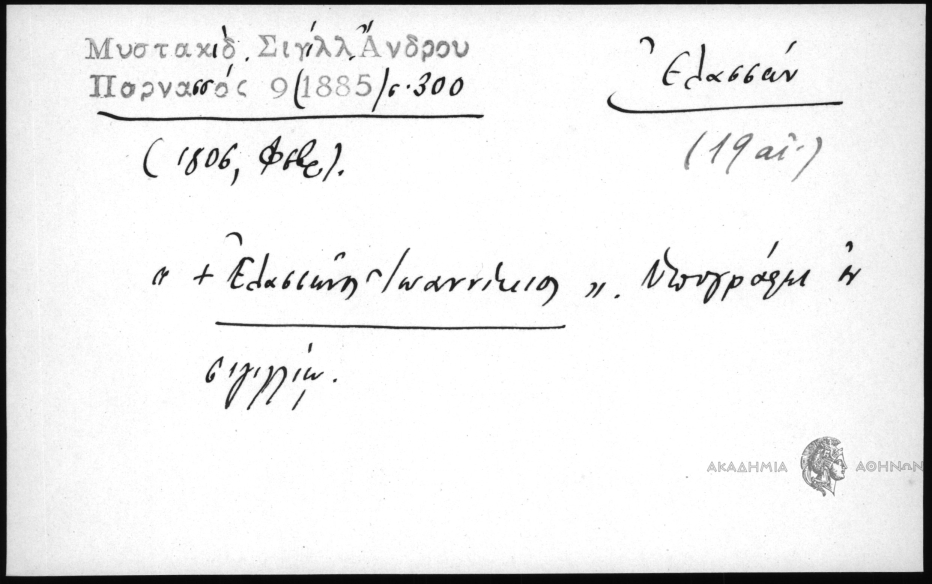 Μυστακίδ. Σιγίλλ Ἄνδρου
Παρνασσός 9 (1885) σ. 300
Ἐλασσών
(1806, Φεβρ).
(19 αἰ.)
« + Ἐλασσῶνος Ἰωαννίκιος ». Ὑπογράφει ἐν
σιγιλλίῳ.
ΑΚΑΔΗΜΙΑ ΑΘΗΝΩΝ